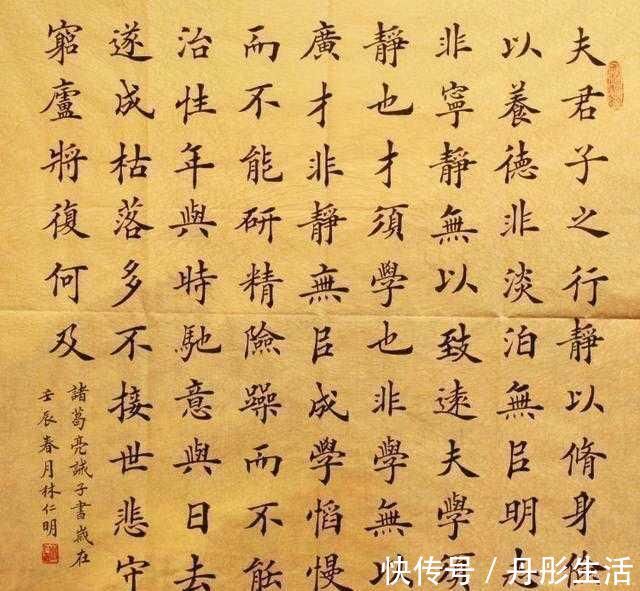 夫君子之行靜以脩身儉
以養德非淡泊無㠯明志
非寧靜無以致遠夫學須
靜也才須學也非學無以
廣才非靜無㠯成學慆慢
而不能研精險躁而不能
治性年與時馳意與日去
遂成枯落多不接世悲守
窮廬將復何及
諸葛亮誡子書歲在
壬辰春月林仁明
快传号 / 丹彤生活